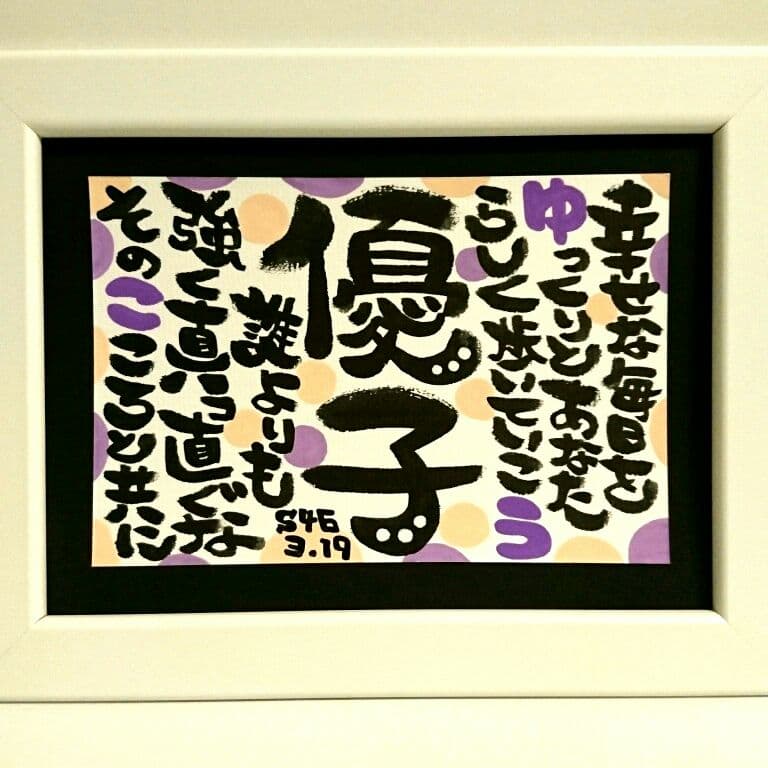 幸せな毎日を
ゆっくりとあなた
らしく歩いていこう
優子
誰よりも
強く真っ直ぐな
そのこころと共に
S46
3.19